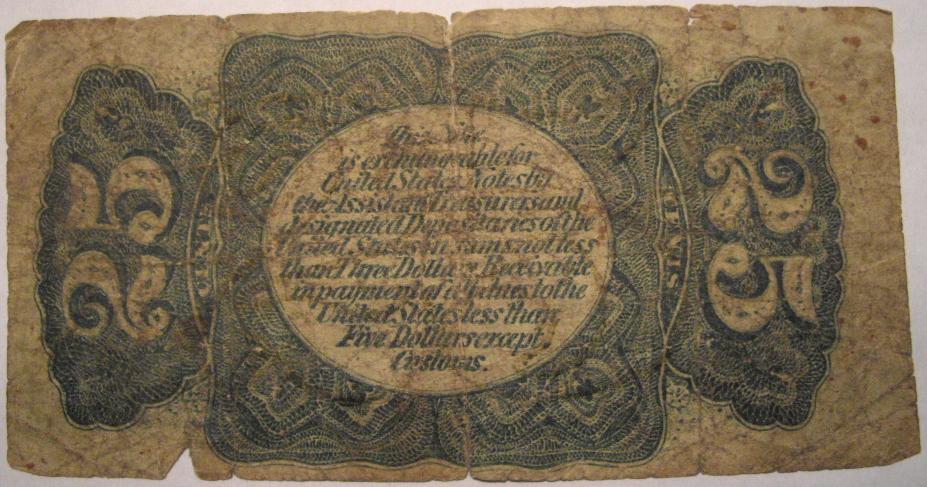 This Note
is exchangeable for
United States Notes by
the Assistant Treasurers and
designated Depositaries of the
United States in sums not less
than Three Dollars. Receivable
in payment of all dues to the
United States less than
Five Dollars except
Customs.
25
CENTS
25
CENTS